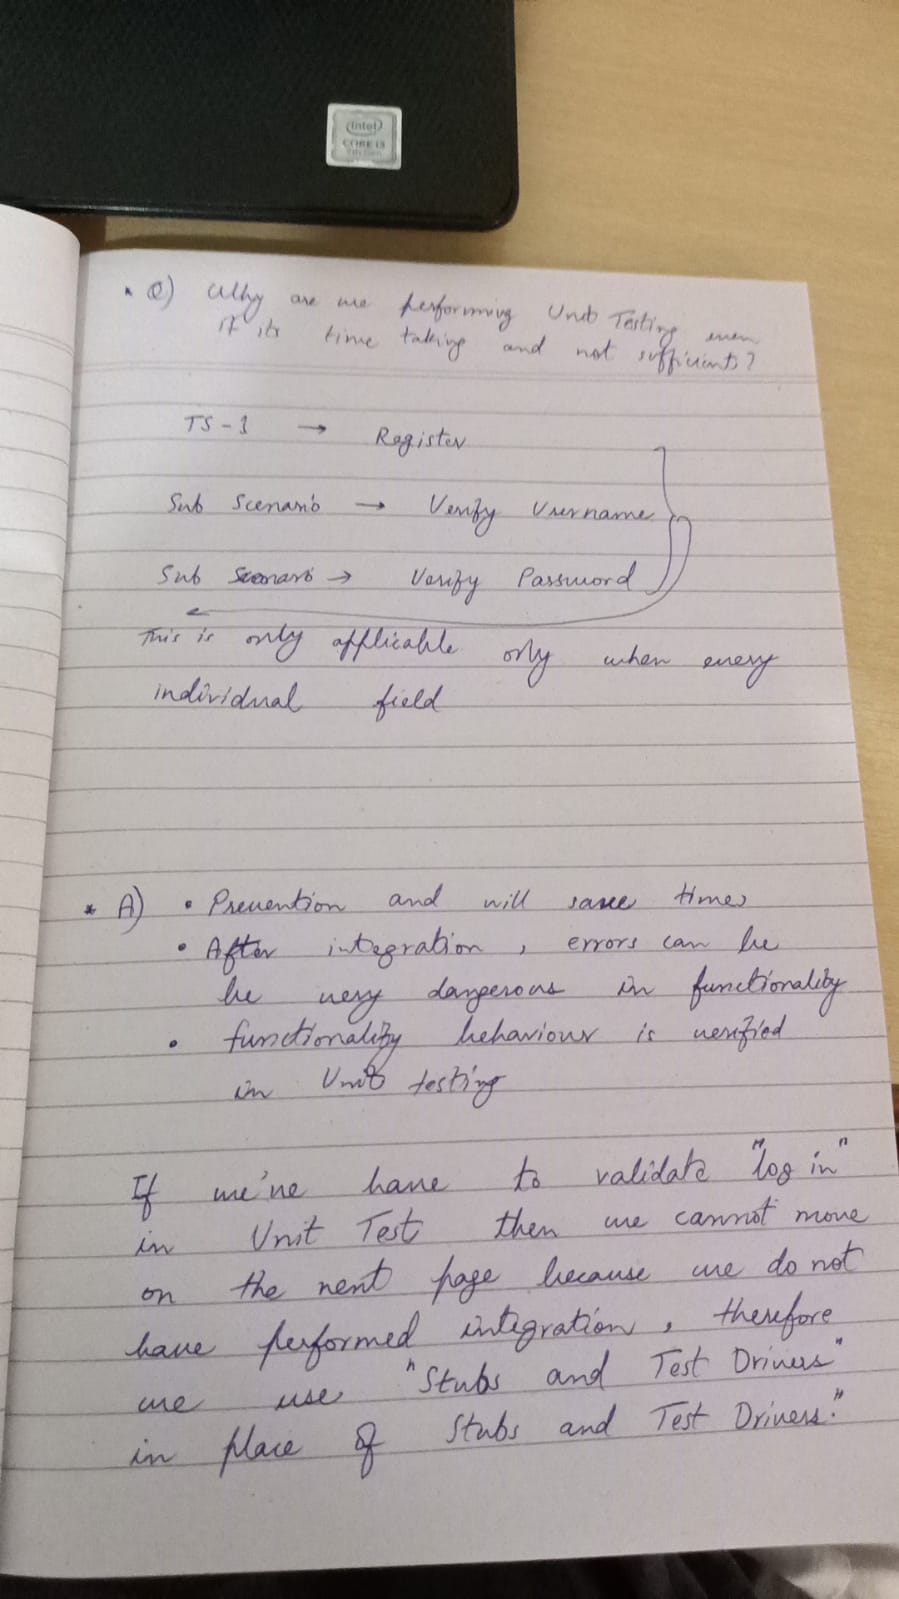 intel
CORE i3
* Q) Why are we performing Unit Testing even
if its time taking and not sufficient?
TS-1 → Register
Sub Scenario → Verify Username
Sub Scenario → Verify Password
This is only applicable only when every
individual field
* A) • Prevention and will save times
• After integration, errors can be
be very dangerous in functionality
• functionality behaviour is verified
in Unit testing
If we've have to validate "log in"
in Unit Test then we cannot move
on the next page because we do not
have performed integration, therefore
we use "Stubs and Test Drivers"
in place of Stubs and Test Drivers."